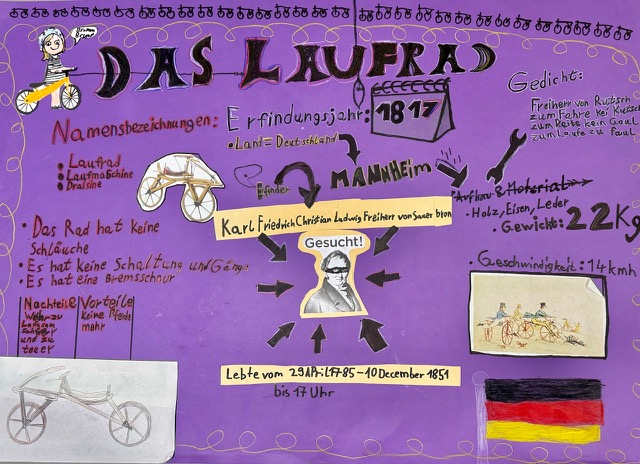 Brumm
Brumm
DAS LAUFRAD
Gedicht:
Freiherr von Rutsch
zum Fahre kei Kutsch
zum Reite kein Gaul
zum Laufe zu faul
Erfindungsjahr: 1817
• Land = Deutschland
MANNHEiM
Erfinder
Namensbezeichnungen:
• Laufrad
• Laufmaschine
• Draisine
Karl Friedrich Christian Ludwig Freiherr von Sauerbron
Gesucht!
Aufbau & Material
• Holz, Eisen, Leder
• Gewicht: 22Kg
• Geschwindigkeit: 14kmh
• Das Rad hat keine
Schläuche
• Es hat keine Schaltung und Gänge
• Es hat eine Bremsschnur
Nachteile Vorteile
keine Pferde
mehr
Langsam
und zu
teuer
Lebte vom 29April1785-10December 1851
bis 17 Uhr